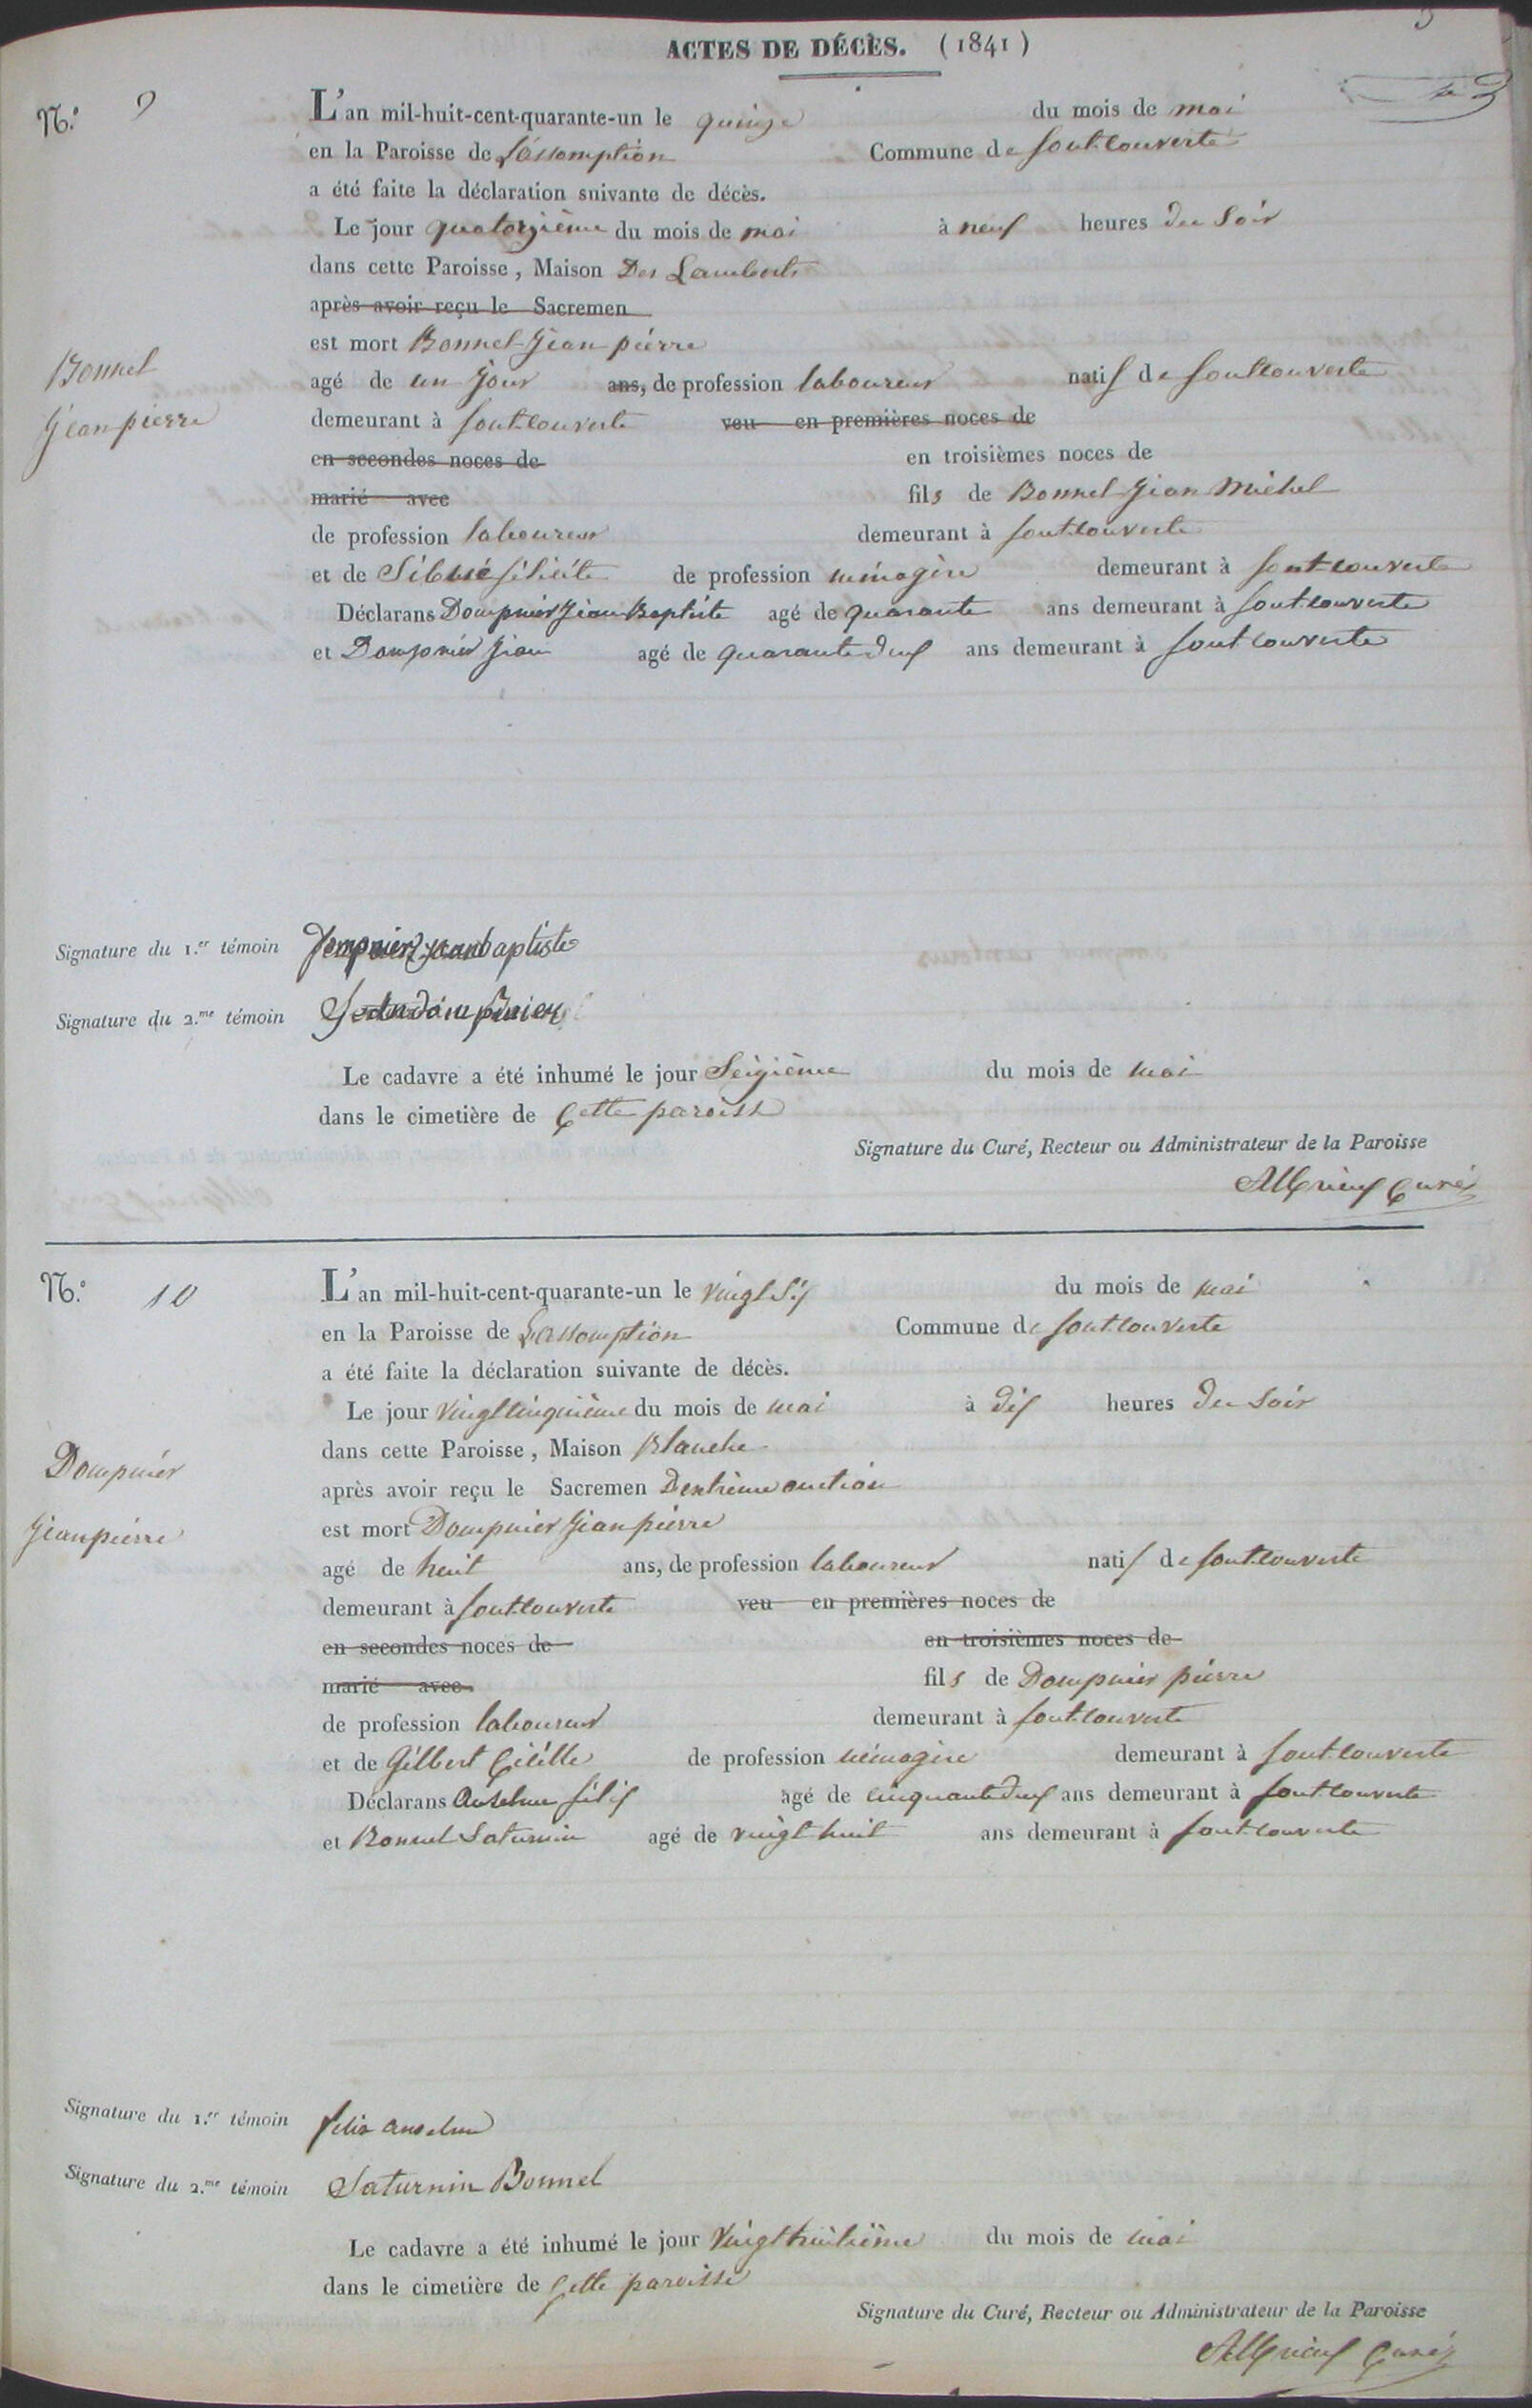 ACTES DE DÉCÈS. (1841)
N.° 9
L'an mil-huit-cent-quarante-un le quinze du mois de mai
en la Paroisse de L'assomption Commune de fontcouverte
a été faite la déclaration suivante de décès.
Le jour quatorzième du mois de mai à neuf heures du Soir
dans cette Paroisse, Maison Des Lamberts
après avoir reçu le Sacremen
est mort Bonnel Jean pierre
Bonnel
Jean pierre
agé de un Jour ans, de profession laboureur natif de fontcouverte
demeurant à fontcouverte veu en premières noces de
en secondes noces de en troisièmes noces de
marié avec fils de Bonnel Jean Michel
de profession laboureur demeurant à fontcouverte
et de Sibué félicité de profession ménagère demeurant à fontcouverte
Déclarans Dompnier Jean Baptiste agé de quarante ans demeurant à fontcouverte
et Dompnier Jean agé de quarante deux ans demeurant à fontcouverte
Signature du 1.er témoin Dompnier jeanbaptiste
Signature du 2.me témoin Jean dompnier
Le cadavre a été inhumé le jour Seizième du mois de mai
dans le cimetière de Cette paroisse
Signature du Curé, Recteur ou Administrateur de la Paroisse
Curé
N.° 10
L'an mil-huit-cent-quarante-un le vingt Six du mois de mai
en la Paroisse de Lassomption Commune de fontcouverte
a été faite la déclaration suivante de décès.
Le jour vingtcinquième du mois de mai à dix heures du Soir
dans cette Paroisse, Maison Blanche
après avoir reçu le Sacremen Dextrème onction
est mort Dompnier Jean pierre
Dompnier
Jean pierre
agé de huit ans, de profession laboureur natif de fontcouverte
demeurant à fontcouverte veu en premières noces de
en secondes noces de en troisièmes noces de
marié avec fils de Dompnier pierre
de profession laboureur demeurant à fontcouverte
et de Gilbert de profession ménagère demeurant à fontcouverte
Déclarans Anselme félix agé de cinquante deux ans demeurant à fontcouverte
et Bonnel Saturnin agé de vingt huit ans demeurant à fontcouverte
Signature du 1.er témoin felix anselme
Signature du 2.me témoin Saturnin Bonnel
Le cadavre a été inhumé le jour Vingt huitième du mois de mai
dans le cimetière de Cette paroisse
Signature du Curé, Recteur ou Administrateur de la Paroisse
Curé